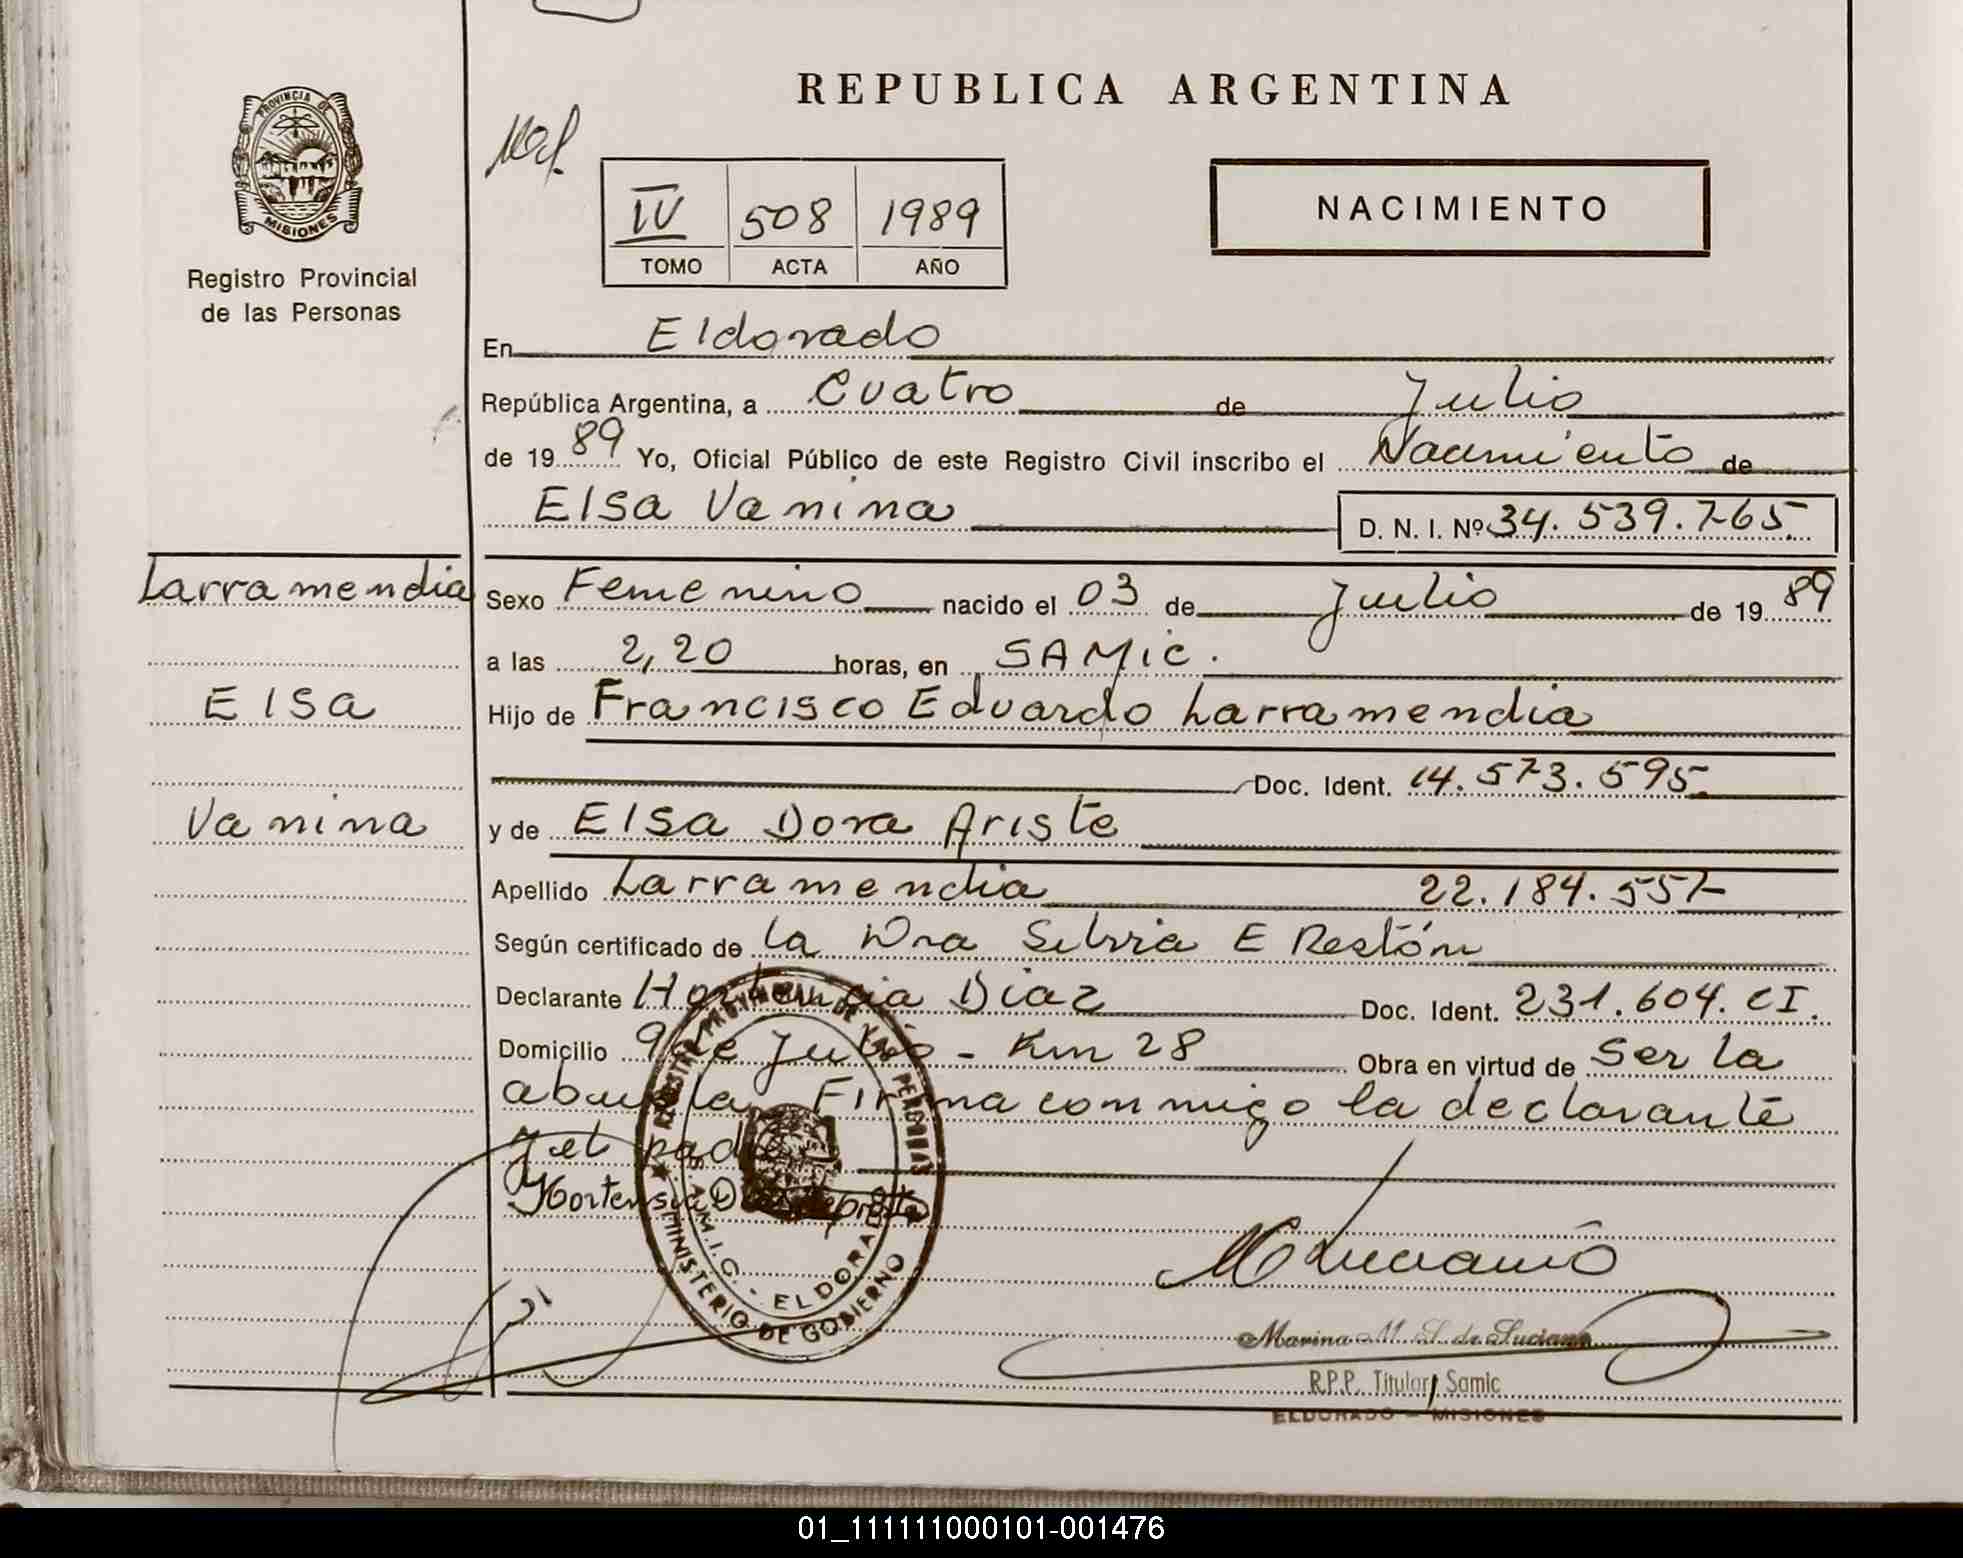 REPUBLICA ARGENTINA
PROVINCIA DE MISIONES
Registro Provincial
de las Personas
IV 508 1989
TOMO ACTA AÑO
NACIMIENTO
En Eldorado
República Argentina, a Cuatro de Julio
de 1989 Yo, Oficial Público de este Registro Civil inscribo el Nacimiento de
Elsa Vanina D. N. I. Nº 34.539.765
Larramendia
Elsa
Vanina
Sexo Femenino nacido el 03 de Julio de 1989
a las 2,20 horas, en SAMic.
Hijo de Francisco Eduardo Larramendia
Doc. Ident. 14.573.595
y de Elsa Dora Ariste
Apellido Larramendia 22.184.557
Según certificado de la Dra Silvia E Restón
Declarante Hortencia Diaz Doc. Ident. 231.604. CI.
Domicilio 9 de Julio - Km 28 Obra en virtud de Ser la
abuela. Firma conmigo la declarante
y el padre
Hortensia
REGISTRO PROVINCIAL DE LAS PERSONAS
S.A.M.I.C. - ELDORADO
MINISTERIO DE GOBIERNO
M Luciano
Marina M. S. de Luciano
R.P.P. Titular Samic
ELDORADO - MISIONES
01_111111000101-001476